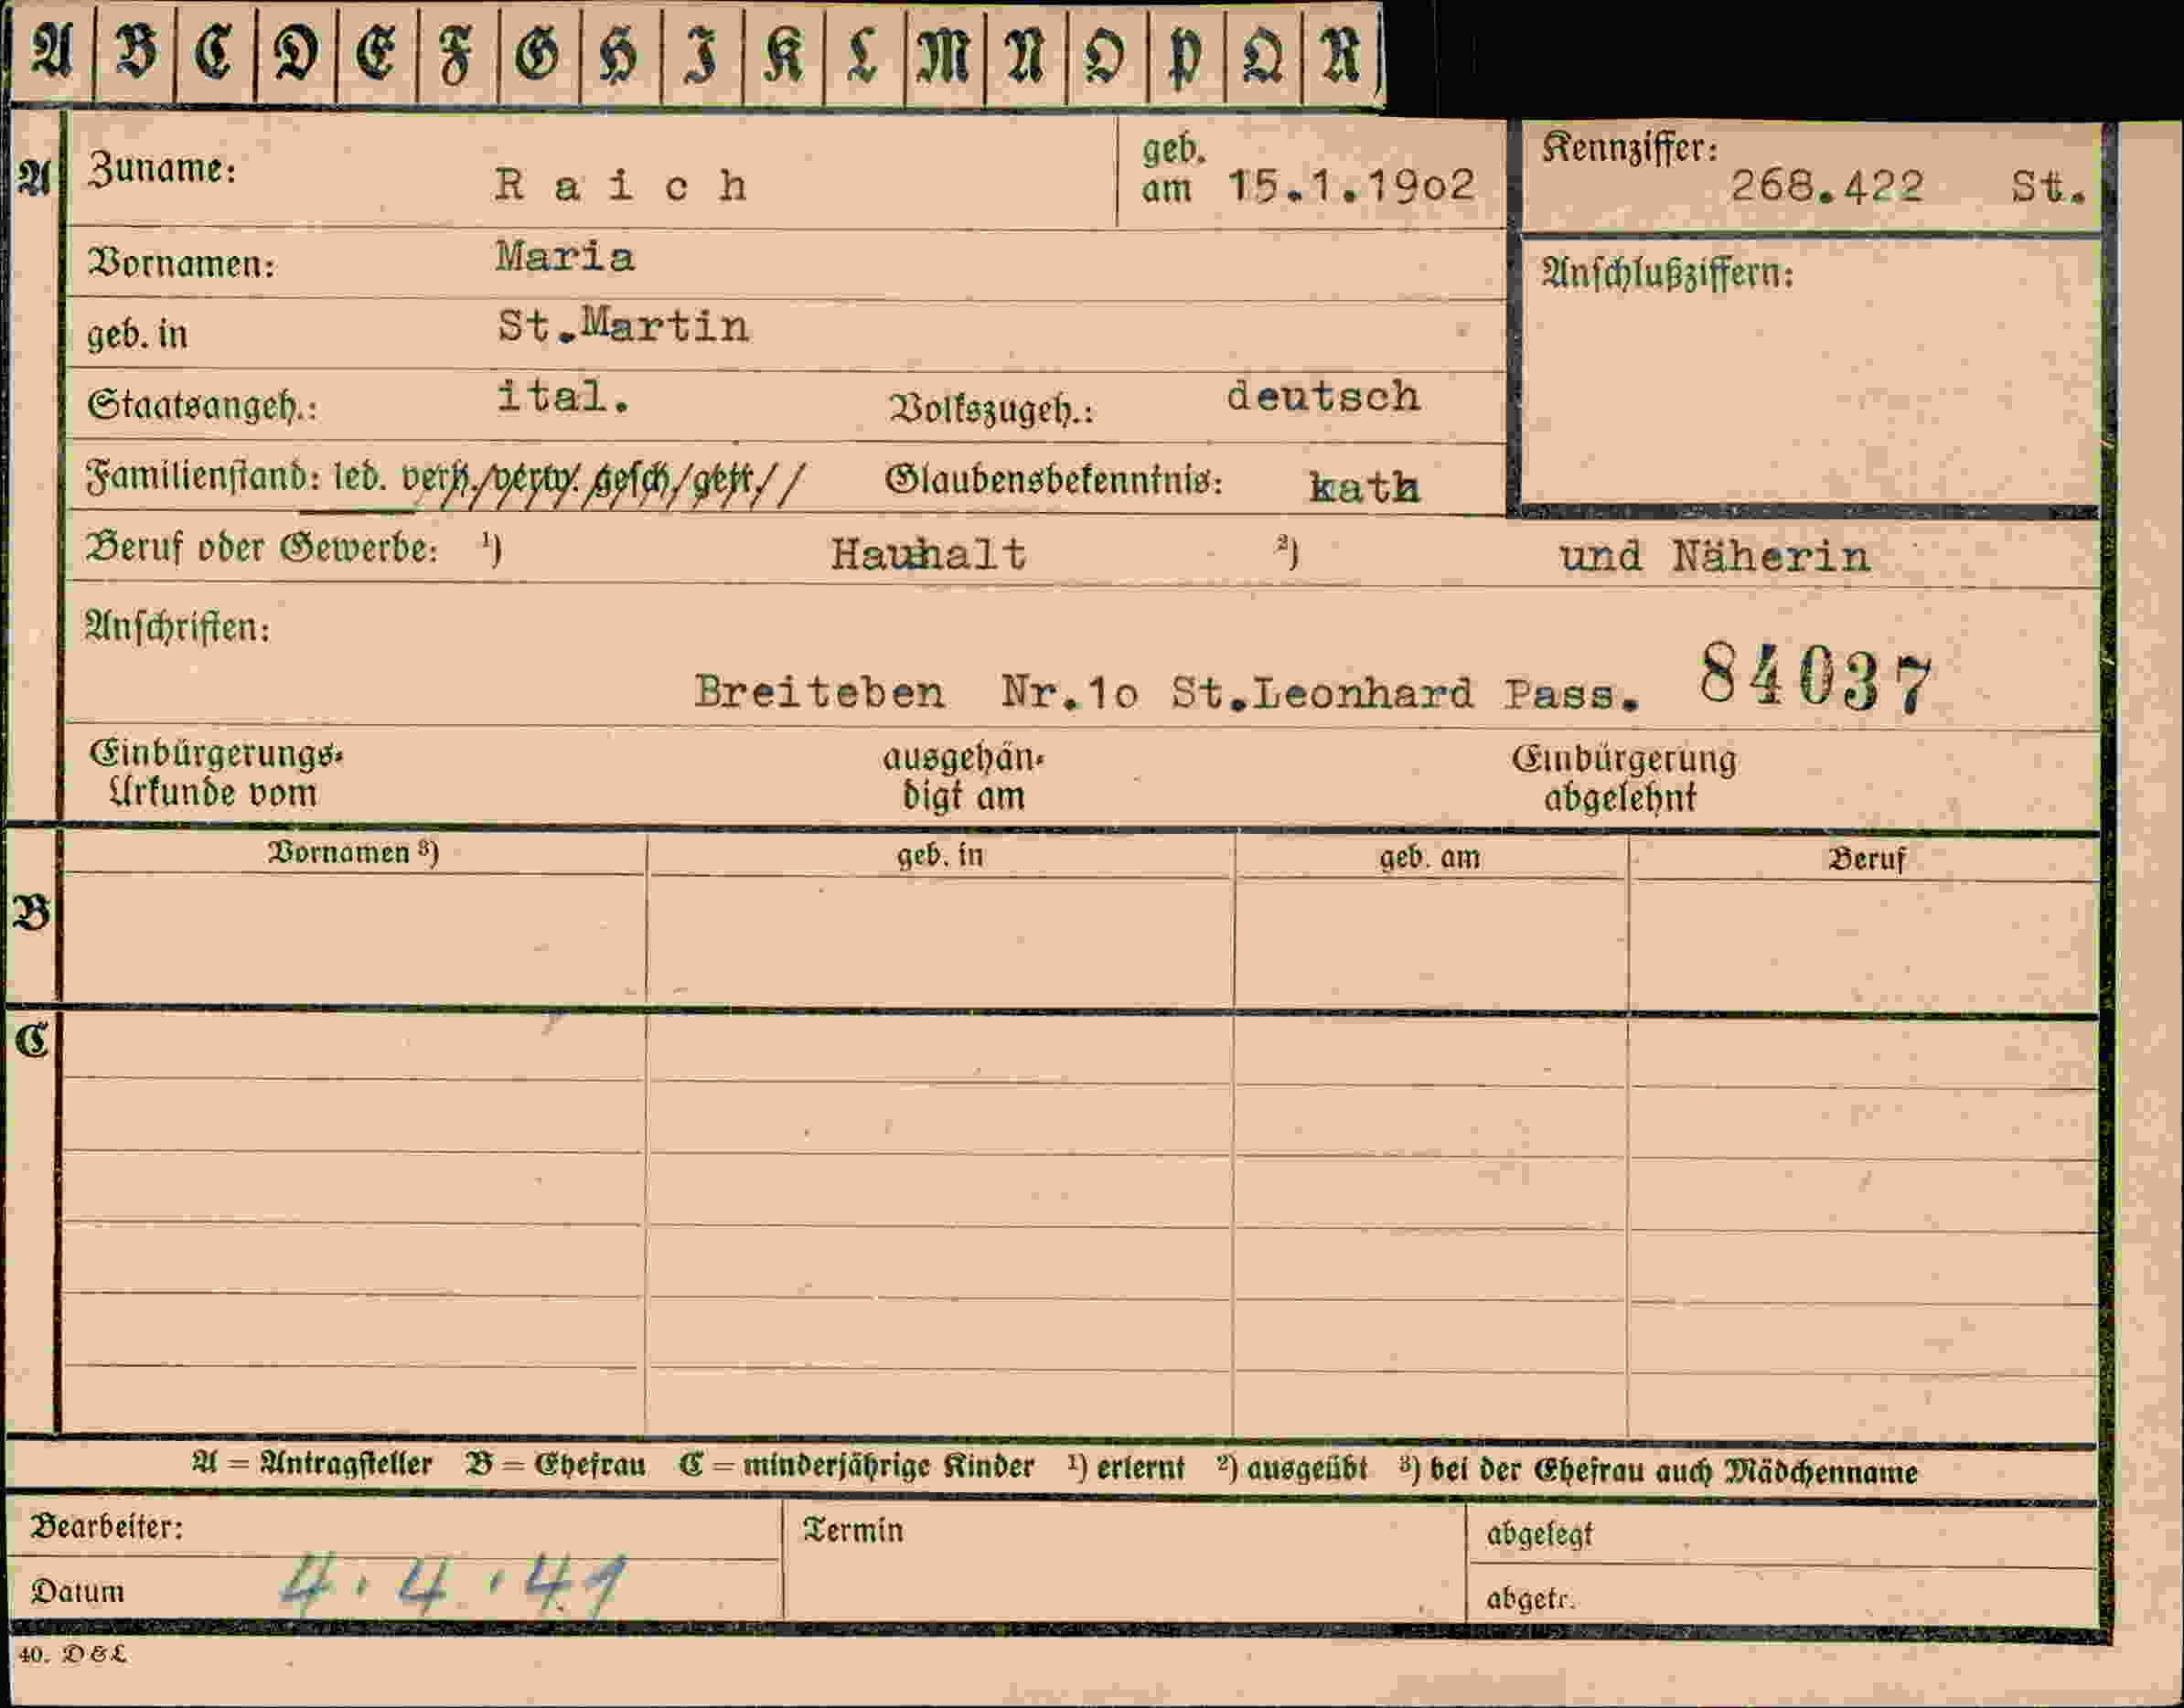 A B C D E F G H I K L M N O P Q R
A Zuname: Raich geb. am 15.1.19o2 Kennziffer: 268.422 St.
Vornamen: Maria Anschlußziffern:
geb. in St.Martin
Staatsangeh.: ital. Volkszugeh.: deutsch
Familienstand: led. verh./verw. gesch/getr. Glaubensbekenntnis: kath
Beruf oder Gewerbe: ¹) Hauhalt ²) und Näherin
Anschriften:
Breiteben Nr.1o St.Leonhard Pass. 84037
Einbürgerungs- ausgehän- Einbürgerung
Urkunde vom digt am abgelehnt
Vornamen ³) geb. in geb. am Beruf
B
C
A = Antragsteller B = Ehefrau C = minderjährige Kinder ¹) erlernt ²) ausgeübt ³) bei der Ehefrau auch Mädchenname
Bearbeiter: Termin abgelegt
Datum 4.4.41 abgetr.
40. D&L